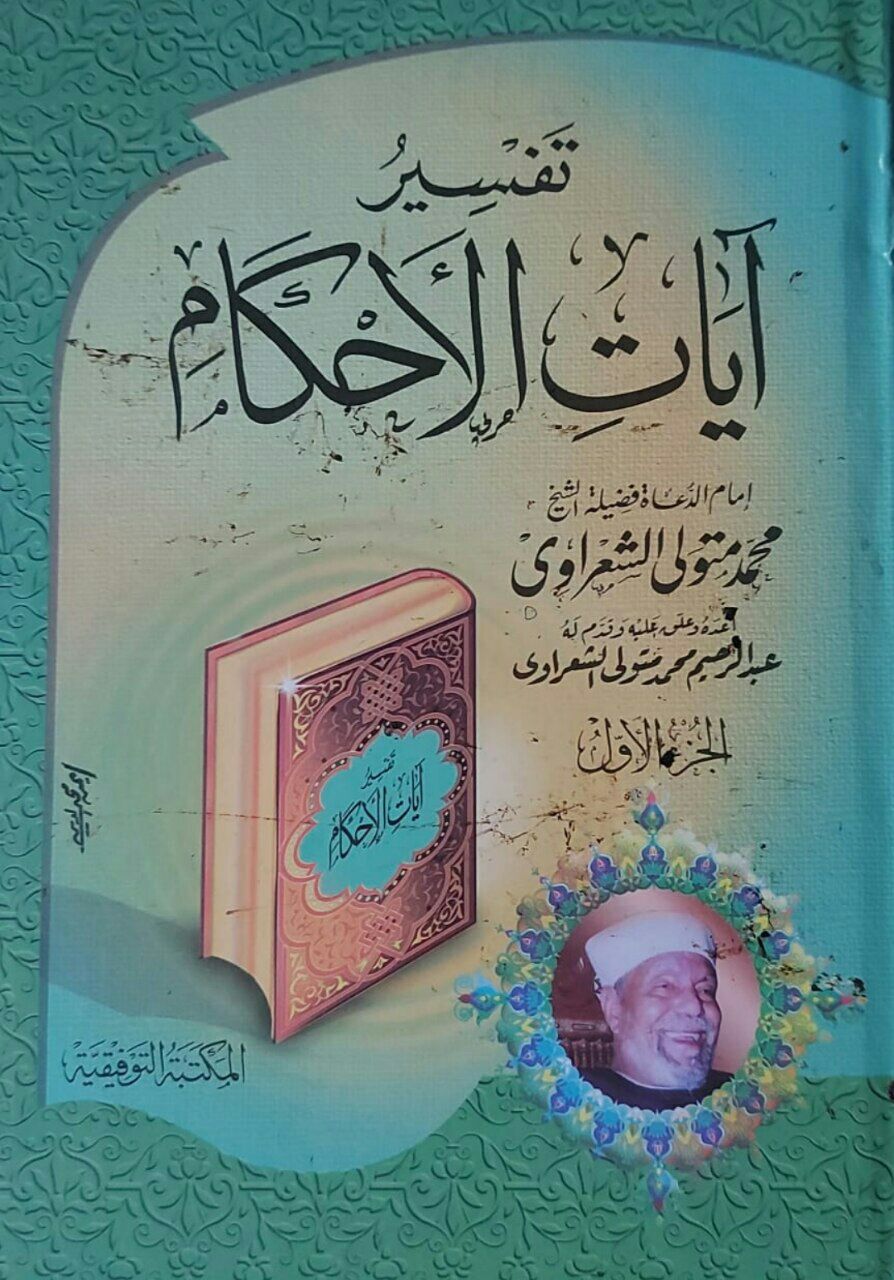 تَفْسِيرُ
آيَاتِ الأَحْكَامِ
إمام الدُّعاة فضيلة الشيخ
محمد متولى الشعراوى
أعده وعلق عليه وقدم له
عبد الرحيم محمد متولى الشعراوى
الجزء الأول
تفسير
آيات الأحكام
المكتبة التوفيقية